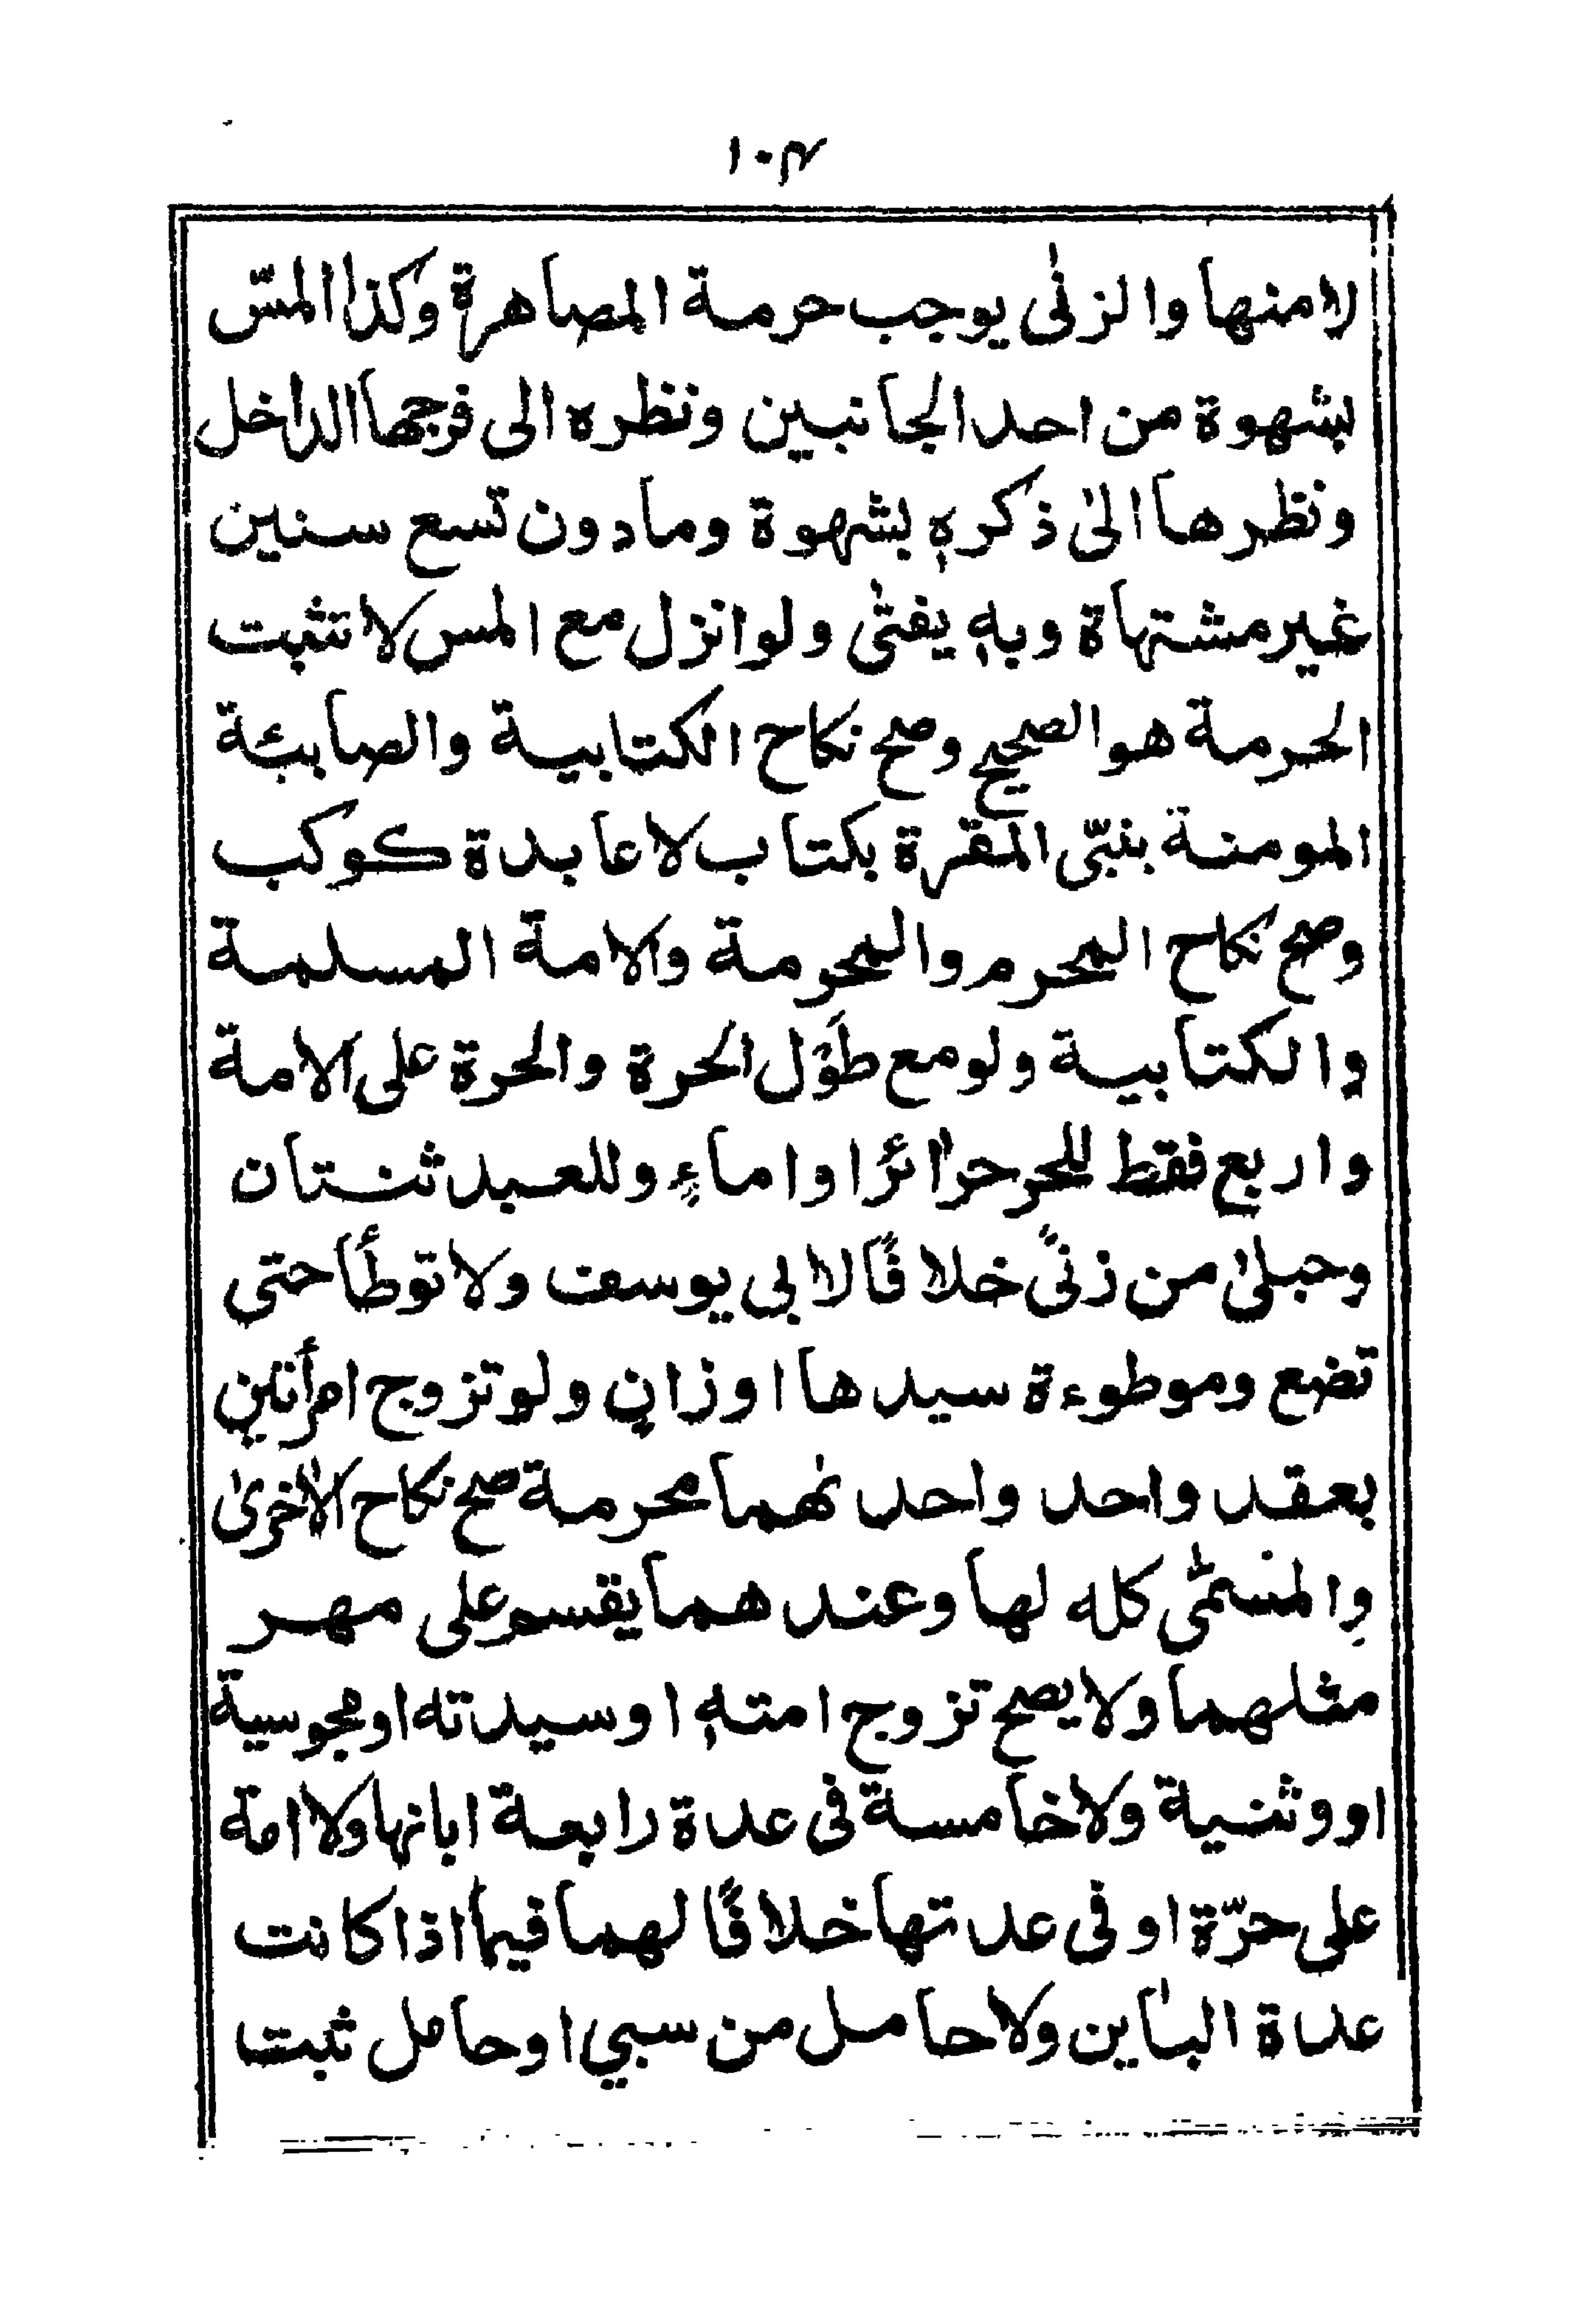 ١٠٣
لا منها والزنٰى يوجب حرمة المصاهرة وكذا المسّ
بشهوة من احد الجانبين ونظره الى فرجها الداخل
ونظرها الىٰ ذكرهٖ بشهوة ومادون تسع سنين
غير مشتهاة وبهٖ يفتىٰ ولو انزل مع المس لا تثبت
الحرمة هو الصحيح وصح نكاح الكتابية والصابئة
المومنة بنبّى المقرة بكتاب لا عابدة كوكب
وصح نكاح المحرم والمحرمة والامة المسلمة
والكتابية ولو مع طَوْل الحرة والحرة على الامة
واربع فقط للحر حرائرًا واماءٍ وللعبد ثنتان
وحبلىٰ من زنىً خلافًا لابي يوسف ولا توطأ حتى
تضع وموطوءة سيدها او زانٍ ولو تزوج امرأتين
بعقد واحد واحدٰهما محرمة صح نكاح الاخرىٰ
والمسمّٰى كله لها وعندهما يقسم على مهر
مثلهما ولا يصح تزوج امتهٖ او سيدته او مجوسية
او وثنية ولا خامسة فى عدة رابعة ابانها ولا امة
على حرّة او فى عدتها خلافًا لهما فيما اذا كانت
عدة الباين ولا حامل من سبي او حامل ثبت